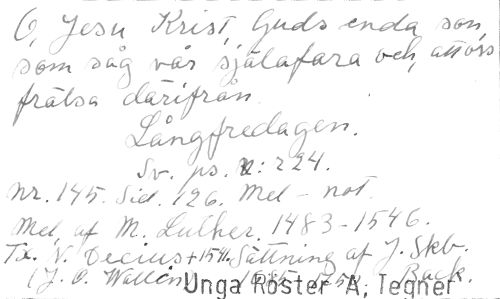 O, Jesu Krist, Guds enda son,
som såg vår själafara och, att oss
frälsa därifrån.
Långfredagen.
Sv. ps. N: 224.
Nr. 145. Sid. 126. Mel - not.
Mel, af M. Luther. 1483-1546.
Tx. N. Decius + 1541. Sättning af J. Skb.
(J. O. Wallin Back.
Unga Röster A, Tegner